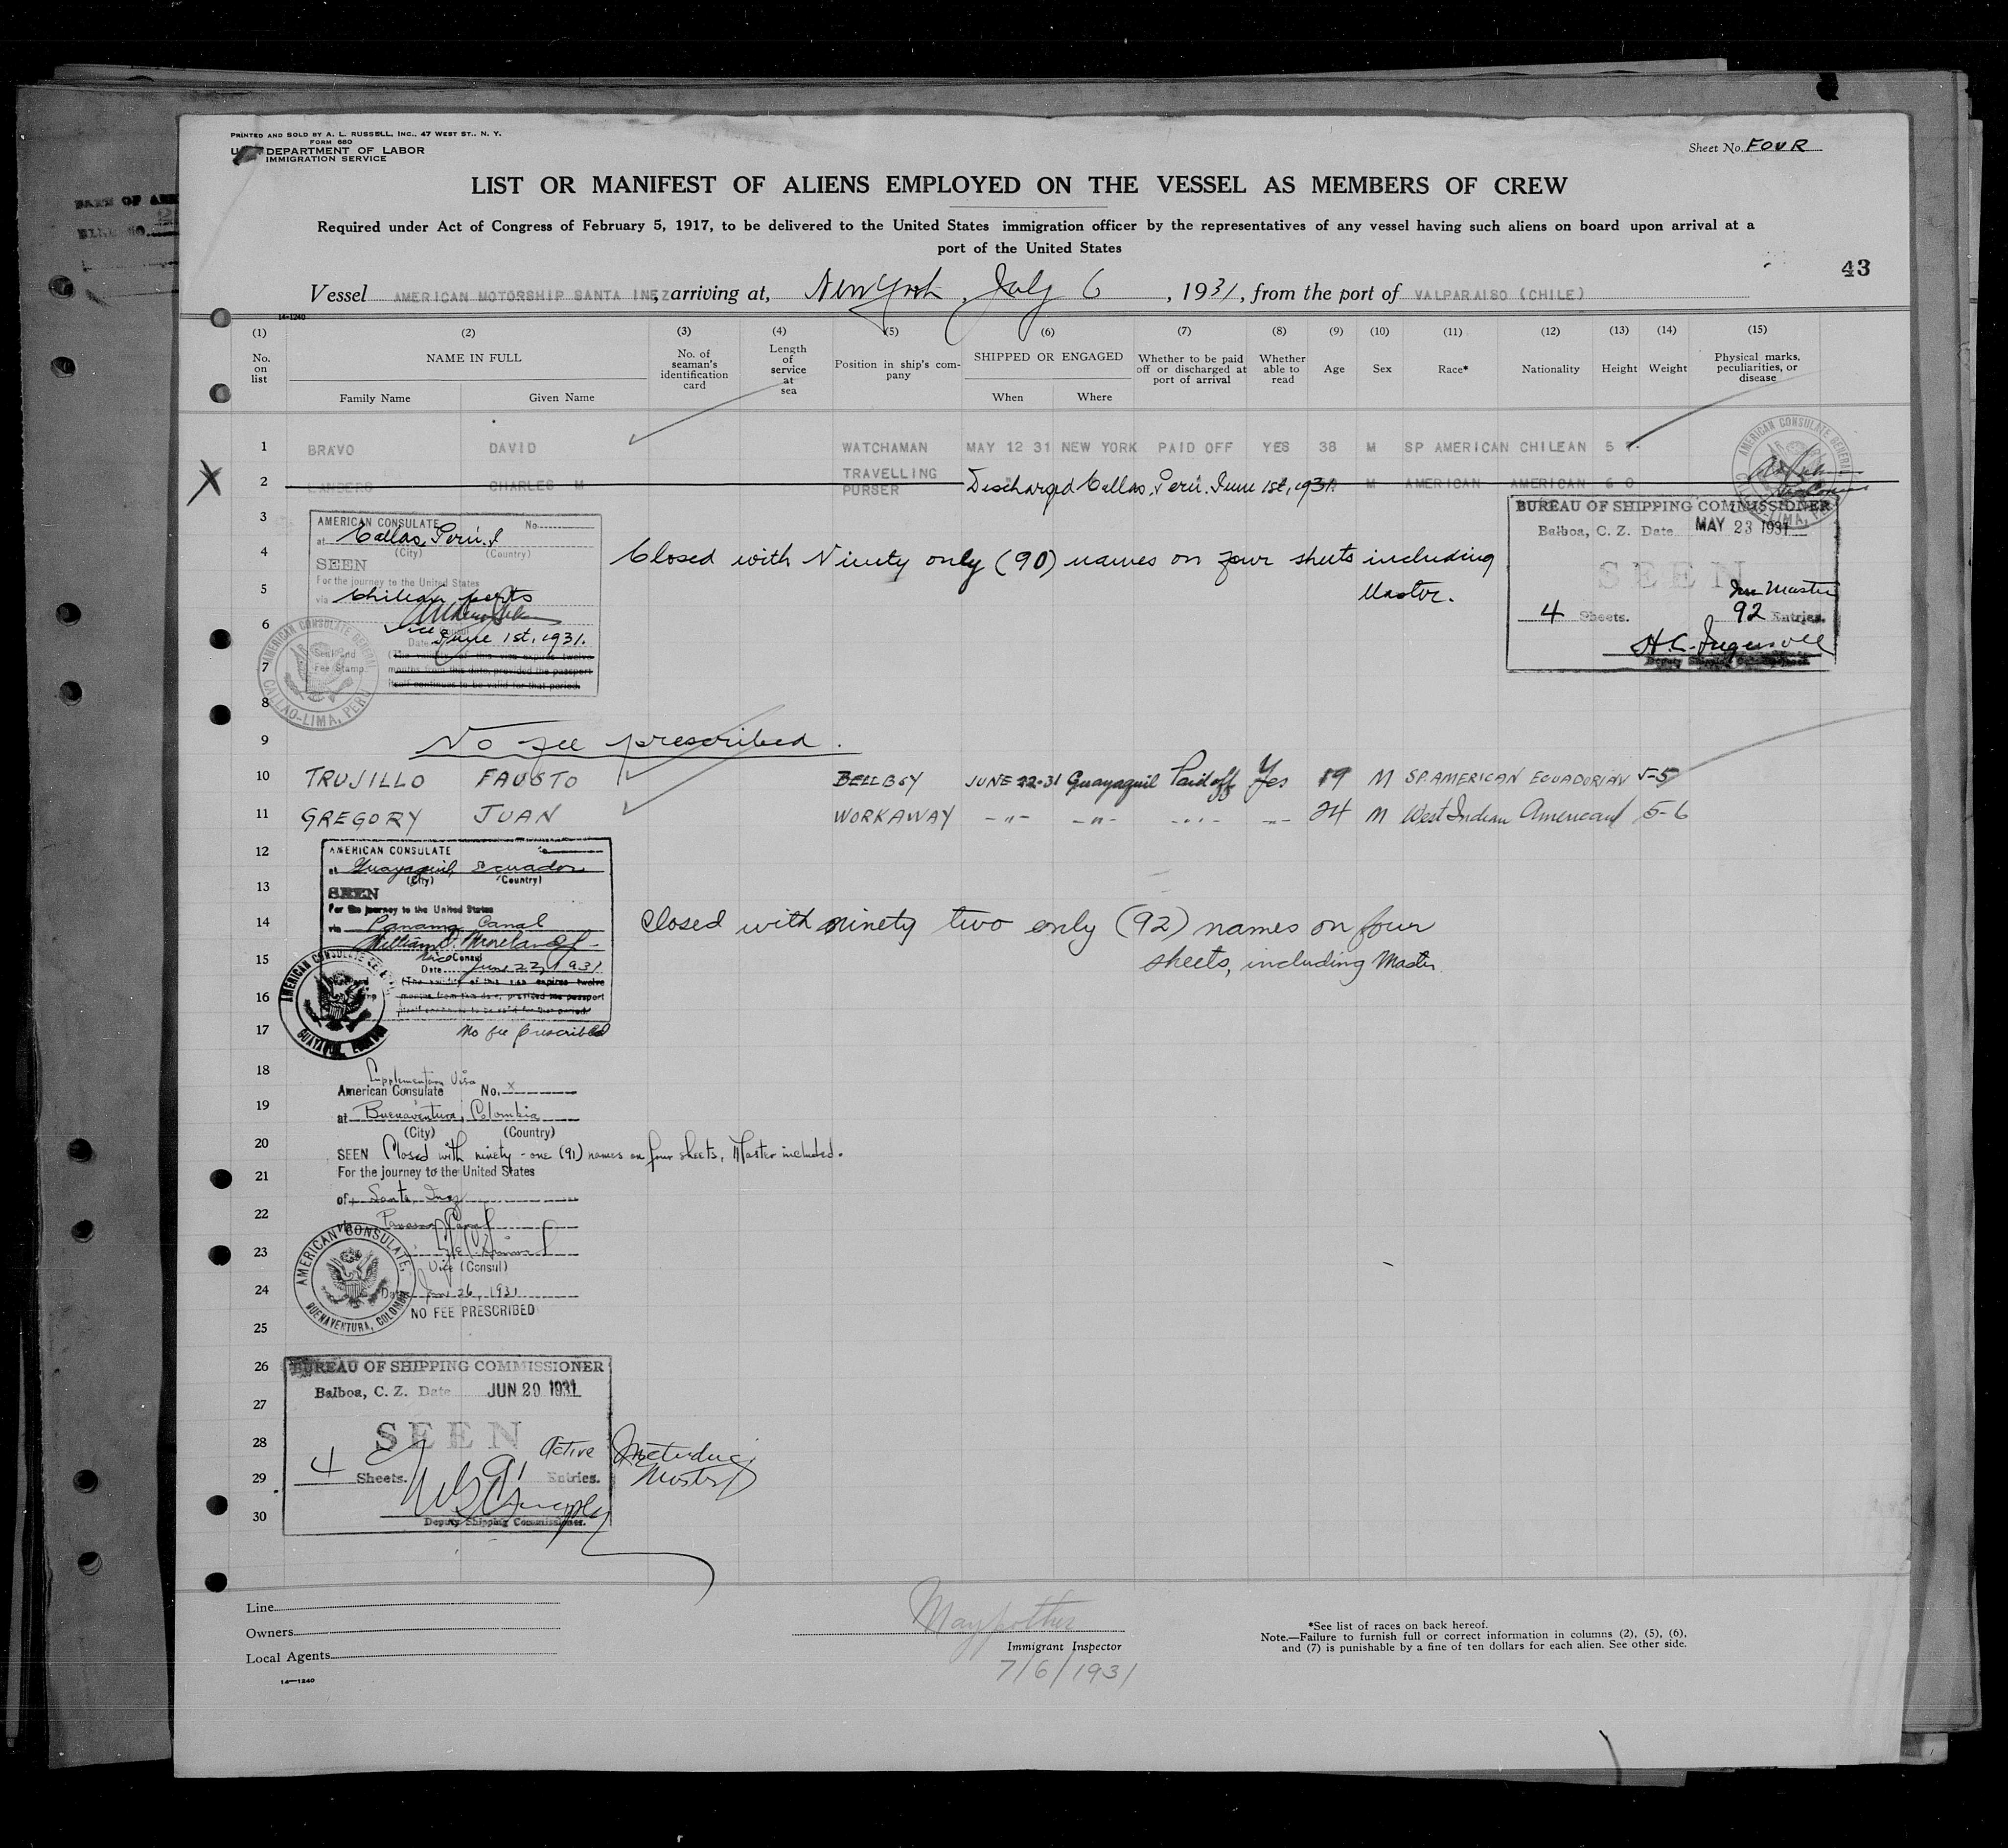 PRINTED AND SOLD BY A. L. RUSSELL, INC., 47 WEST ST., N. Y.
FORM 680
DEPARTMENT OF LABOR
IMMIGRATION SERVICE
Sheet No. FOUR
LIST OR MANIFEST OF ALIENS EMPLOYED ON THE VESSEL AS MEMBERS OF CREW
Required under Act of Congress of February 5, 1917, to be delivered to the United States immigration officer by the representatives of any vessel having such aliens on board upon arrival at a
port of the United States
43
Vessel AMERICAN MOTORSHIP SANTA INEZ, arriving at, New York, July 6, 1931, from the port of VALPARAISO (CHILE)
14-1240
(1) (2) (3) (4) (5) (6) (7) (8) (9) (10) (11) (12) (13) (14) (15)
No. on list NAME IN FULL Family Name Given Name No. of seaman's identification card Length of service at sea Position in ship's company SHIPPED OR ENGAGED When Where Whether to be paid off or discharged at port of arrival Whether able to read Age Sex Race* Nationality Height Weight Physical marks, peculiarities, or disease
1 BRAVO DAVID WATCHAMAN MAY 12 31 NEW YORK PAID OFF YES 38 M SP AMERICAN CHILEAN 5
X 2 LANDERS CHARLES M TRAVELLING PURSER Discharged Callao, Perú. June 1st, 1931. M AMERICAN AMERICAN 6 0
AMERICAN CONSULATE GENERAL
3 AMERICAN CONSULATE No.
at Callao, Perú.
(City) (Country)
SEEN
For the journey to the United States
via Chilean ports
Vice Consul
Date June 1st, 1931.
(The validity of this visa expires twelve
months from this date, provided the passport
itself continues to be valid for that period.
Fee Stamp
AMERICAN CONSULATE GENERAL
CALLAO-LIMA, PERU
4 Closed with Ninety only (90) names on four sheets including
5 Master.
BUREAU OF SHIPPING COMMISSIONER
Balboa, C. Z. Date MAY 23 1931
SEEN
Master
4 Sheets. 92 Entries.
H.C. Ingersoll
Deputy Shipping Commissioner.
6
7
8
9 No fee prescribed.
10 TRUJILLO FAUSTO BELLBOY JUNE 22-31 Guayaquil Paid off Yes 19 M SP. AMERICAN ECUADORIAN 5-5
11 GREGORY JUAN WORKAWAY -"- -"- -"- -"- 24 M West Indian American 5-6
12 AMERICAN CONSULATE
at Guayaquil, Ecuador
(City) (Country)
13 SEEN
For the journey to the United States
14 via Panama Canal
Vice Consul
15 Date June 22, 1931
(The validity of this visa expires twelve
16 months from this date, provided the passport
itself continues to be valid for that period.
17 No fee prescribed
AMERICAN CONSULATE GENERAL
GUAYAQUIL, ECUADOR
Closed with ninety two only (92) names on four
sheets, including Master.
18 Supplementary Visa
American Consulate No. x
19 at Buenaventura, Colombia
(City) (Country)
20 SEEN Closed with ninety-one (91) names on four sheets, Master included.
21 For the journey to the United States
of Santa Inez
22 via Panama Canal
23 Vice (Consul)
24 Date June 26, 1931
NO FEE PRESCRIBED
25
AMERICAN CONSULATE,
BUENAVENTURA, COLOMBIA
26 BUREAU OF SHIPPING COMMISSIONER
Balboa, C. Z. Date JUN 29 1931
27
SEEN
28 Active Including
29 4 Sheets. 91 Entries. Master
30
Deputy Shipping Commissioner.
Line
Owners
Local Agents
14-1240
Immigrant Inspector
7/6/1931
*See list of races on back hereof.
Note.—Failure to furnish full or correct information in columns (2), (5), (6),
and (7) is punishable by a fine of ten dollars for each alien. See other side.